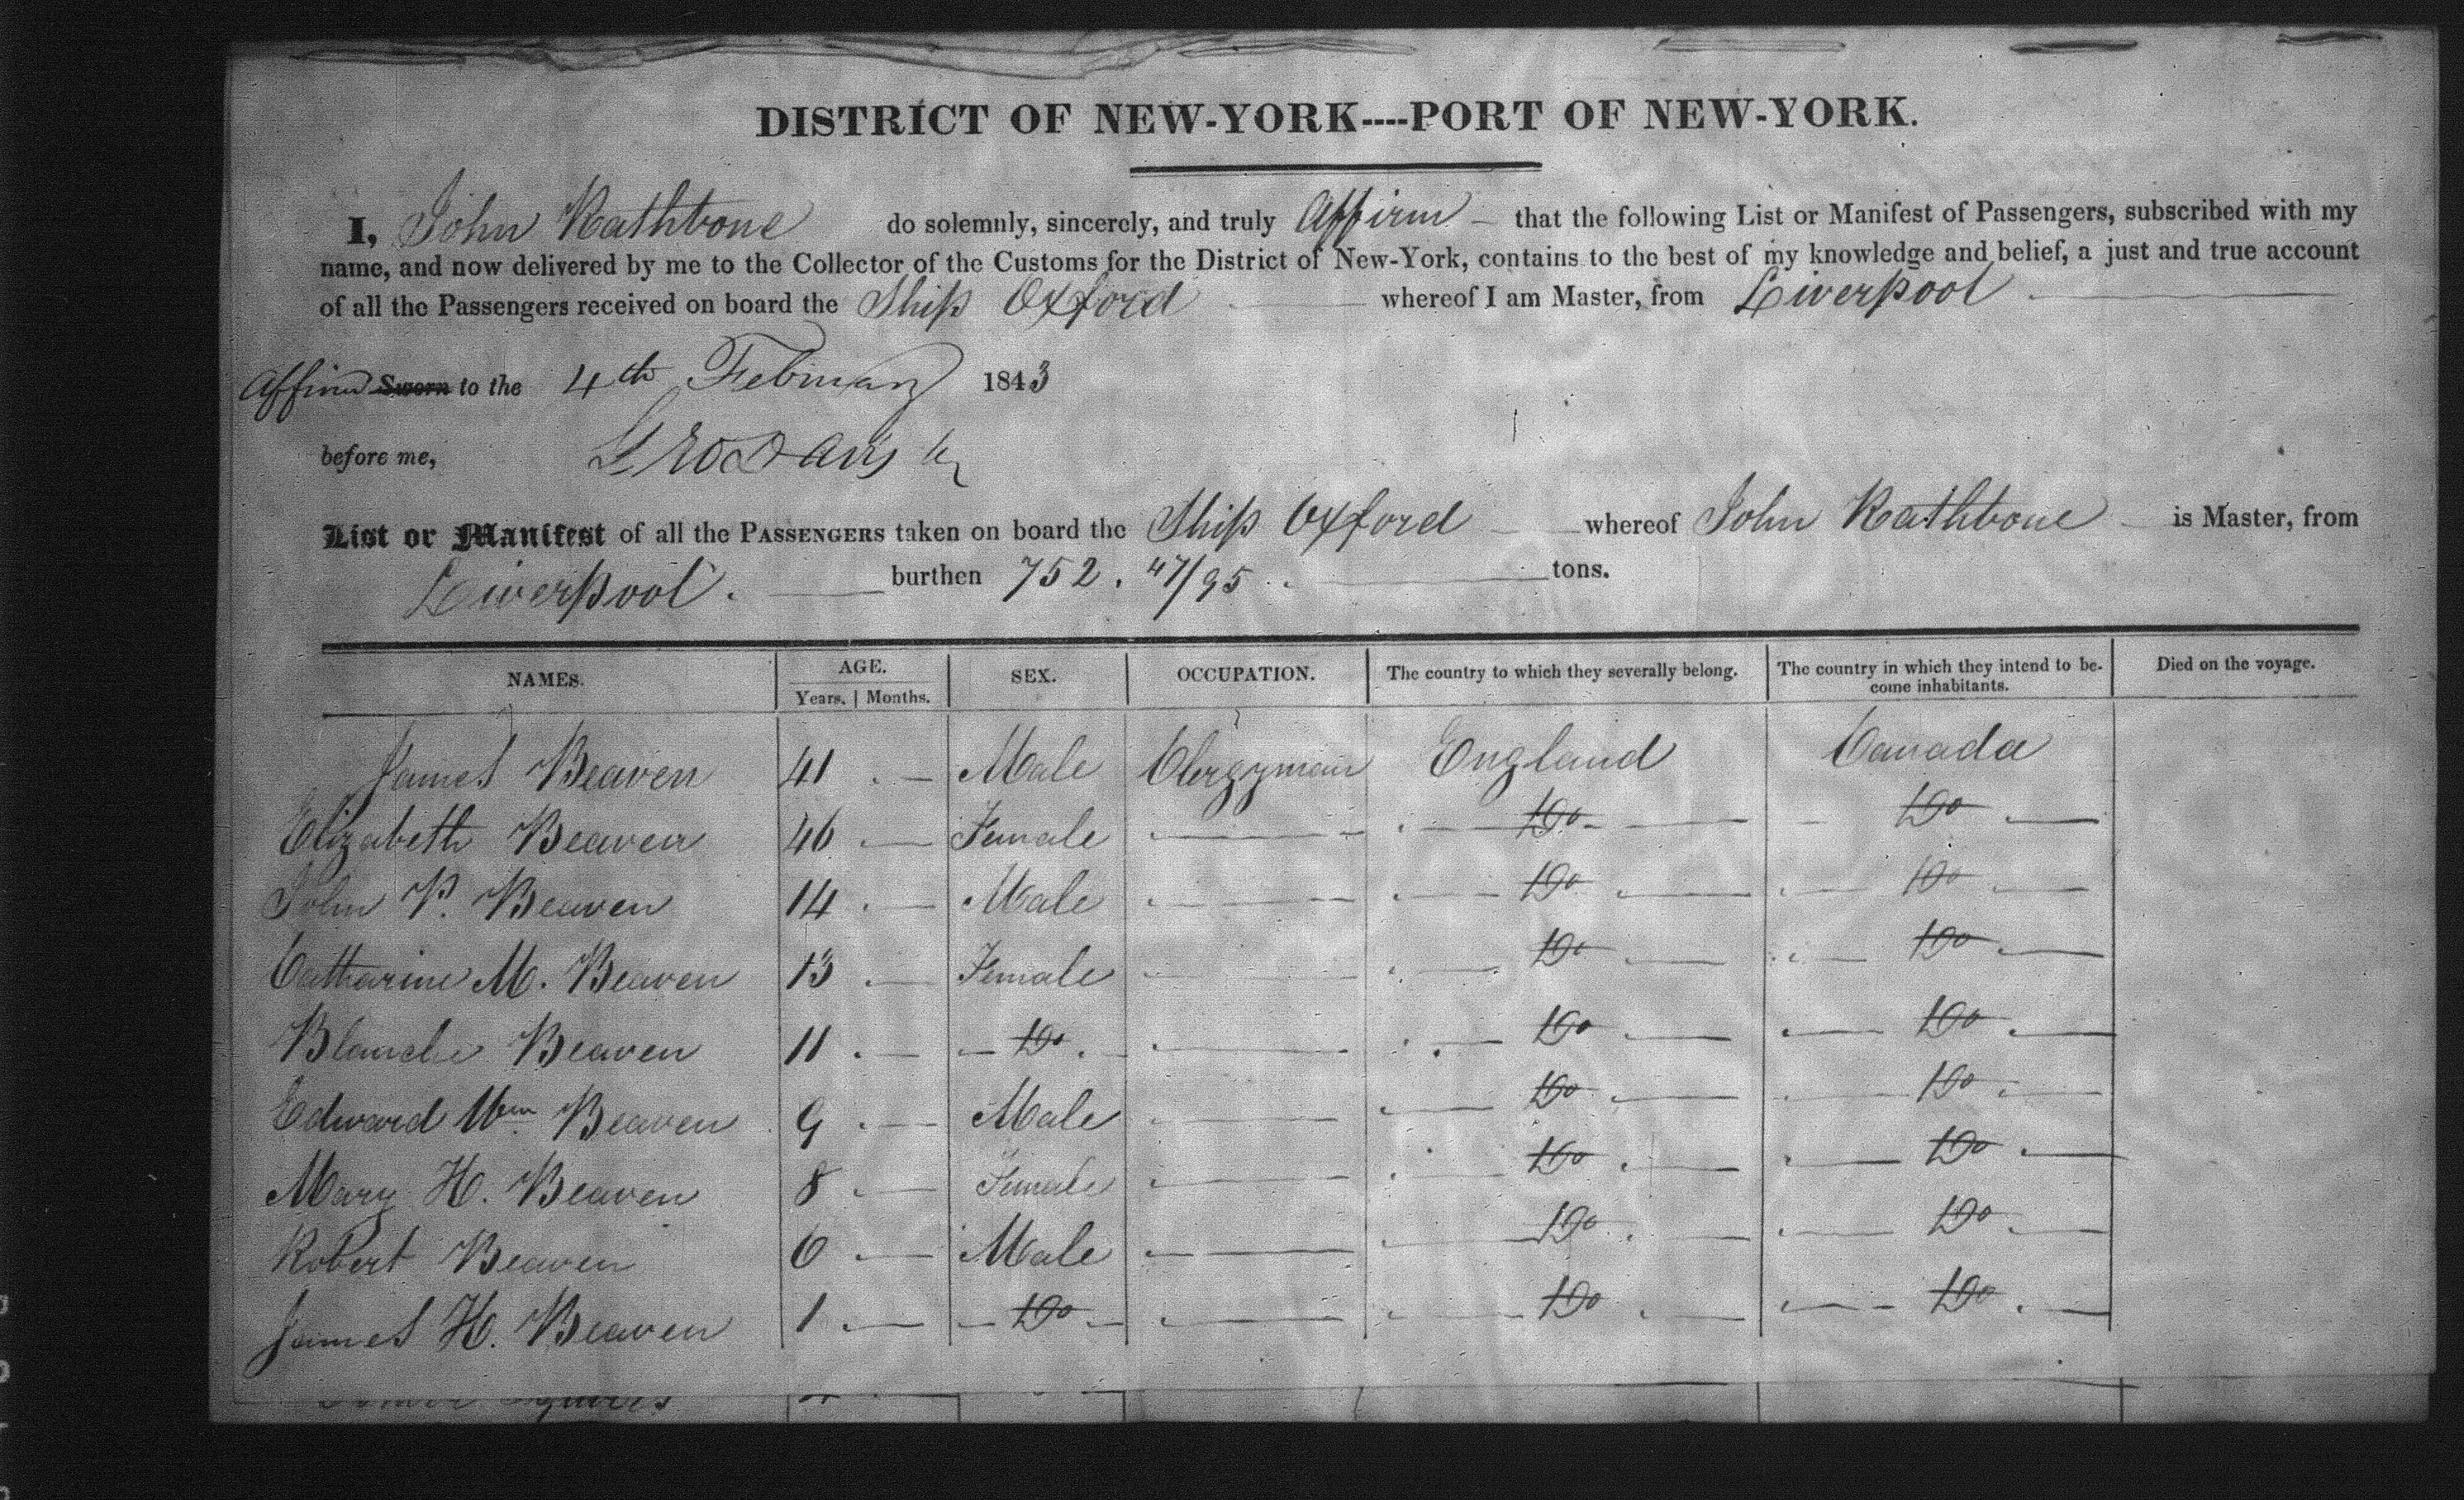 DISTRICT OF NEW-YORK----PORT OF NEW-YORK.
I, John Rathbone do solemnly, sincerely, and truly Affirm — that the following List or Manifest of Passengers, subscribed with my
name, and now delivered by me to the Collector of the Customs for the District of New-York, contains to the best of my knowledge and belief, a just and true account
of all the Passengers received on board the Ship Oxford whereof I am Master, from Liverpool
Affirmd Sworn to the 4th February 1843
before me, Davis
List or Manifest of all the PASSENGERS taken on board the Ship Oxford whereof John Rathbone is Master, from
Liverpool. burthen 752. 47/95 tons.
NAMES. AGE. Years. Months. SEX. OCCUPATION. The country to which they severally belong. The country in which they intend to be-come inhabitants. Died on the voyage.
James Beaven 41 . — Male Clergyman England Canada
Elizabeth Beaven 46 — Female — Do — Do —
John P. Beaven 14 . — Male — Do — Do —
Catharine M. Beaven 13 — Female — Do — Do —
Blanche Beaven 11 . — Do . — Do — Do —
Edward Wm Beaven 9 . — Male — Do — Do —
Mary H. Beaven 8 — Female — Do — Do —
Robert Beaven 6 — Male — Do — Do —
James H. Beaven 1 — Do — Do — Do —